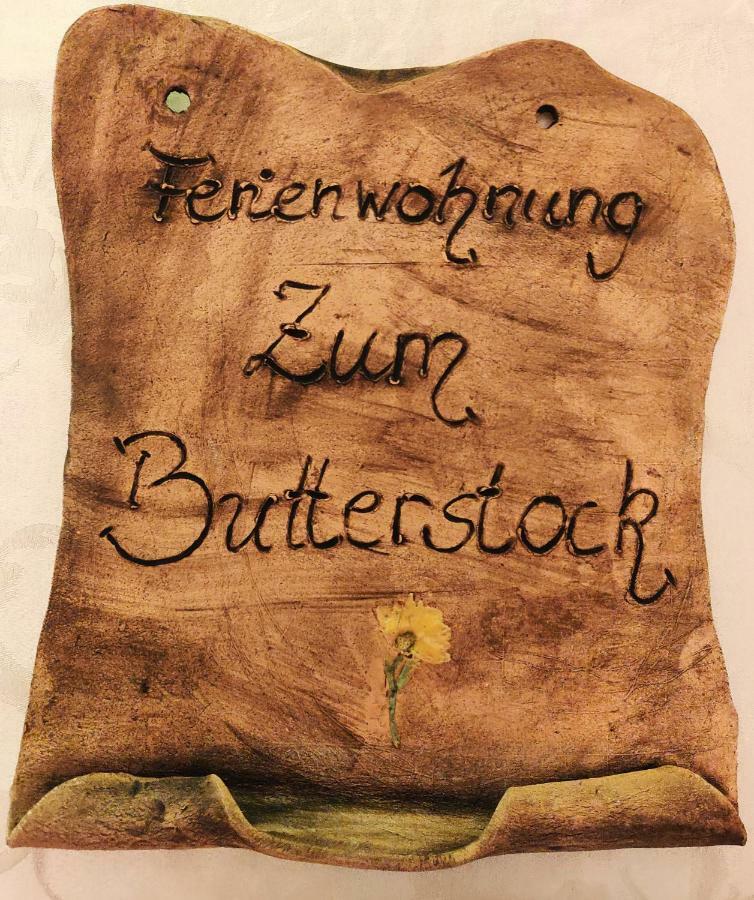 Ferienwohnung
Zum
Butterstock